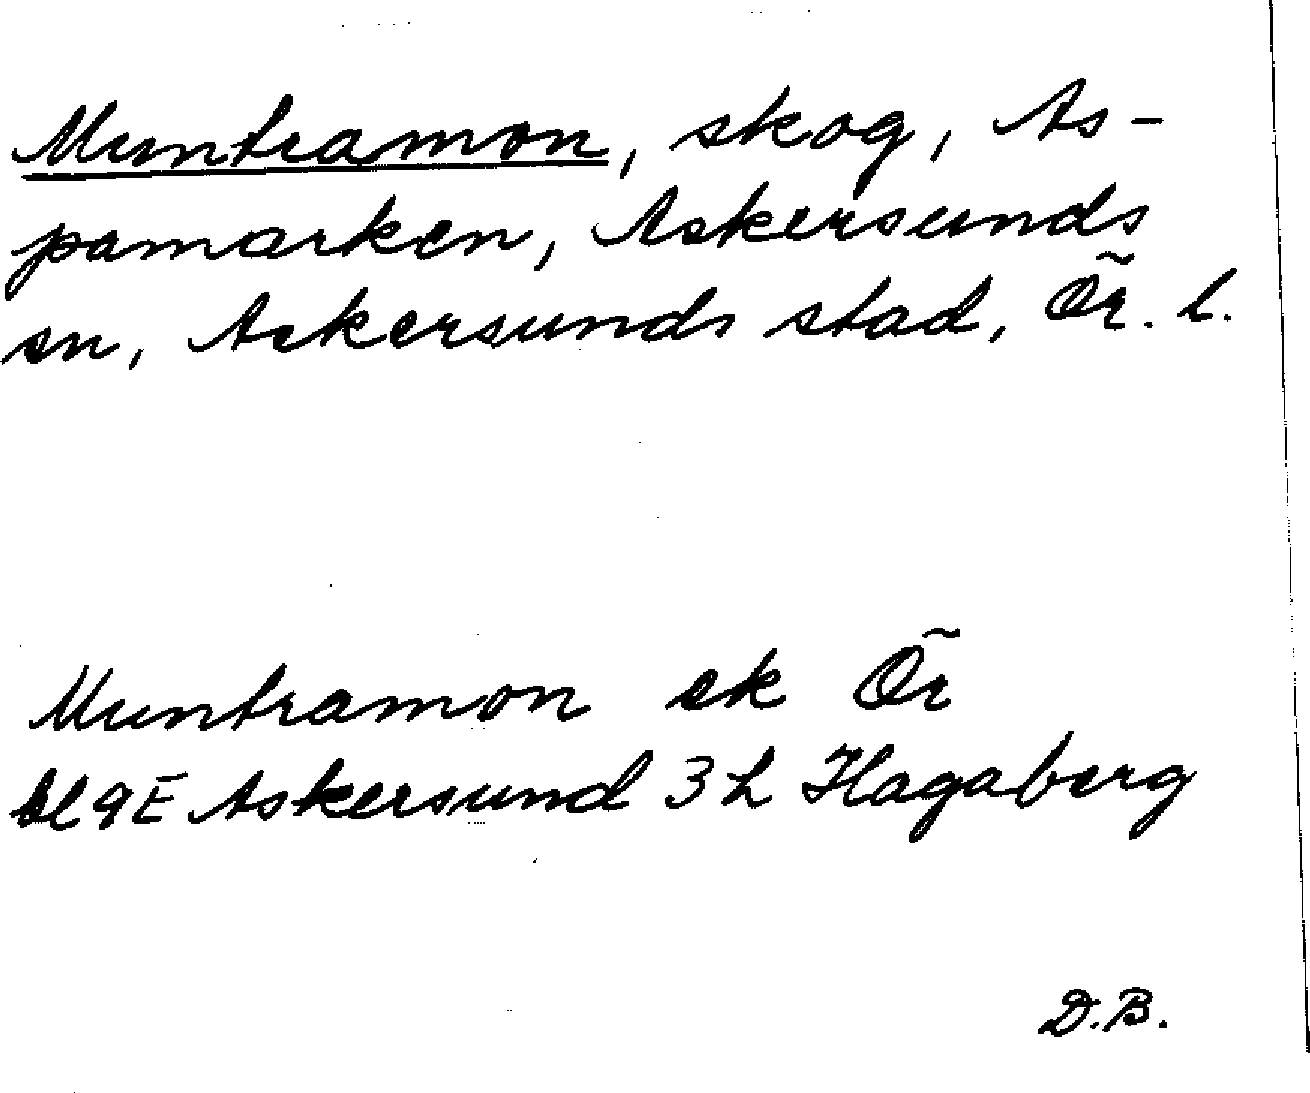 Muntramon, skog, As-
pamarken, Askersunds
sn, Askersunds stad, Ör. l.
Muntramon ek Ör
bl 9E Askersund 3 h Hagaberg
D.B.